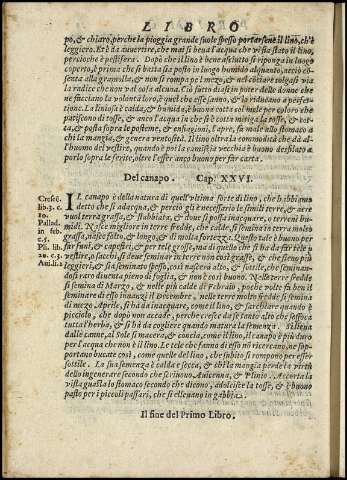 LIBRO
po, & chiaro, perche la pioggia grande suole spesso portarsene il lino, ch'è
leggiero. Et è da auuertire, che mai si beua l'acqua che vi sia stato il lino,
percioche è pestifera. Dopò che il lino è bene asciutto si riponga in luogo
coperto, & prima che si batta sia posto in luogo humido alquanto, acciò
senta alla gramolla, & non si rompa pel mezo, & nel còttare colgasi via
la radice che non val cosa alcuna. Ciò fatto diasi in potere delle donne che
ne facciano la volontà loro, & quel che esse sanno, & lo riducano a perfet-
tione. La linosa è calda, & humida, & buone cotta col mele per coloro che
patiscono di tosse, & anco l'acqua in che si è cotta mitiga la tosse, & tot-
ta, & posta sopra le posteme, & enfiagioni, l'apri, fa male allo stomaco a
chi la mangia, & genera ventosità. Il lino oltra la commodità che dà al-
l'huomo del vestire, quando è poi la camiscia vecchia è buono desfilato a
porlo sopra le ferite, oltre l'esser anco buono per far carta.
Del canapo. Cap. XXVI.
IL canapo è della natura di quell'vltima sorte di lino, che habbiamo
detto che si adacqua, & perciò gli è necessario le simili terre, & aere
vuol terra grassa, & stabbiata, & doue si possa inacquare, o terreni hu-
midi. Nasce migliore in terre fredde, che calde, si semina in terra molto
grassa, nasce folto, & longo, & di molta fortezza. Questo tale è buono per
far funi, & capestri, & per tele grosse, ma di quello che si ha da far tele da
vestire, o sacchi, si deue seminar in terre non così grasse, & che sieno più
leggieri, & sia seminato spesso, così nascerà alto, & sottile, che seminan-
dosi raro diuenta pieno di foglia, & non è così buono. Nelle terre fredde
si semina di Marzo, & nelle più calde di Febraio, poche volte fu ben il
seminare di esso inanzi il Decembre, nelle terre molto fredde si semina di
mezo Aprile, si ha da inacquare, come il lino, & sarchiare quando è
picciolo, che dopò non accade, perche cresce da se tanto alto che soffoca
tutta l'herba, & si ha da cogliere quando matura la semenza. Si lieua
dalle canne, al Sole si macera, & concia, come il lino, il canapo è più duro
per l'acqua che non è il lino. Le tele che fanno di esso nõ ricercano, ne sop-
portano bucate così, come quelle del lino, che subito si rompono per esser
sottile. La sua semenza è calda e secca, & chi la mangia perde la virtù
dello ingenerare secondo che scriuono Auicenna, & Plinio. Accorta la
vista guasta lo stomaco secondo che dicono, adolcisce la tosse, & è buono
pasto per i piccoli passari, che si alleuano in gabbia.
Cresc.
lib. 3. c.
10.
Pallad.
in feb.
c. 5
Pli. lib.
20. c. 5.
Auil. ii 2
Il fine del Primo Libro.